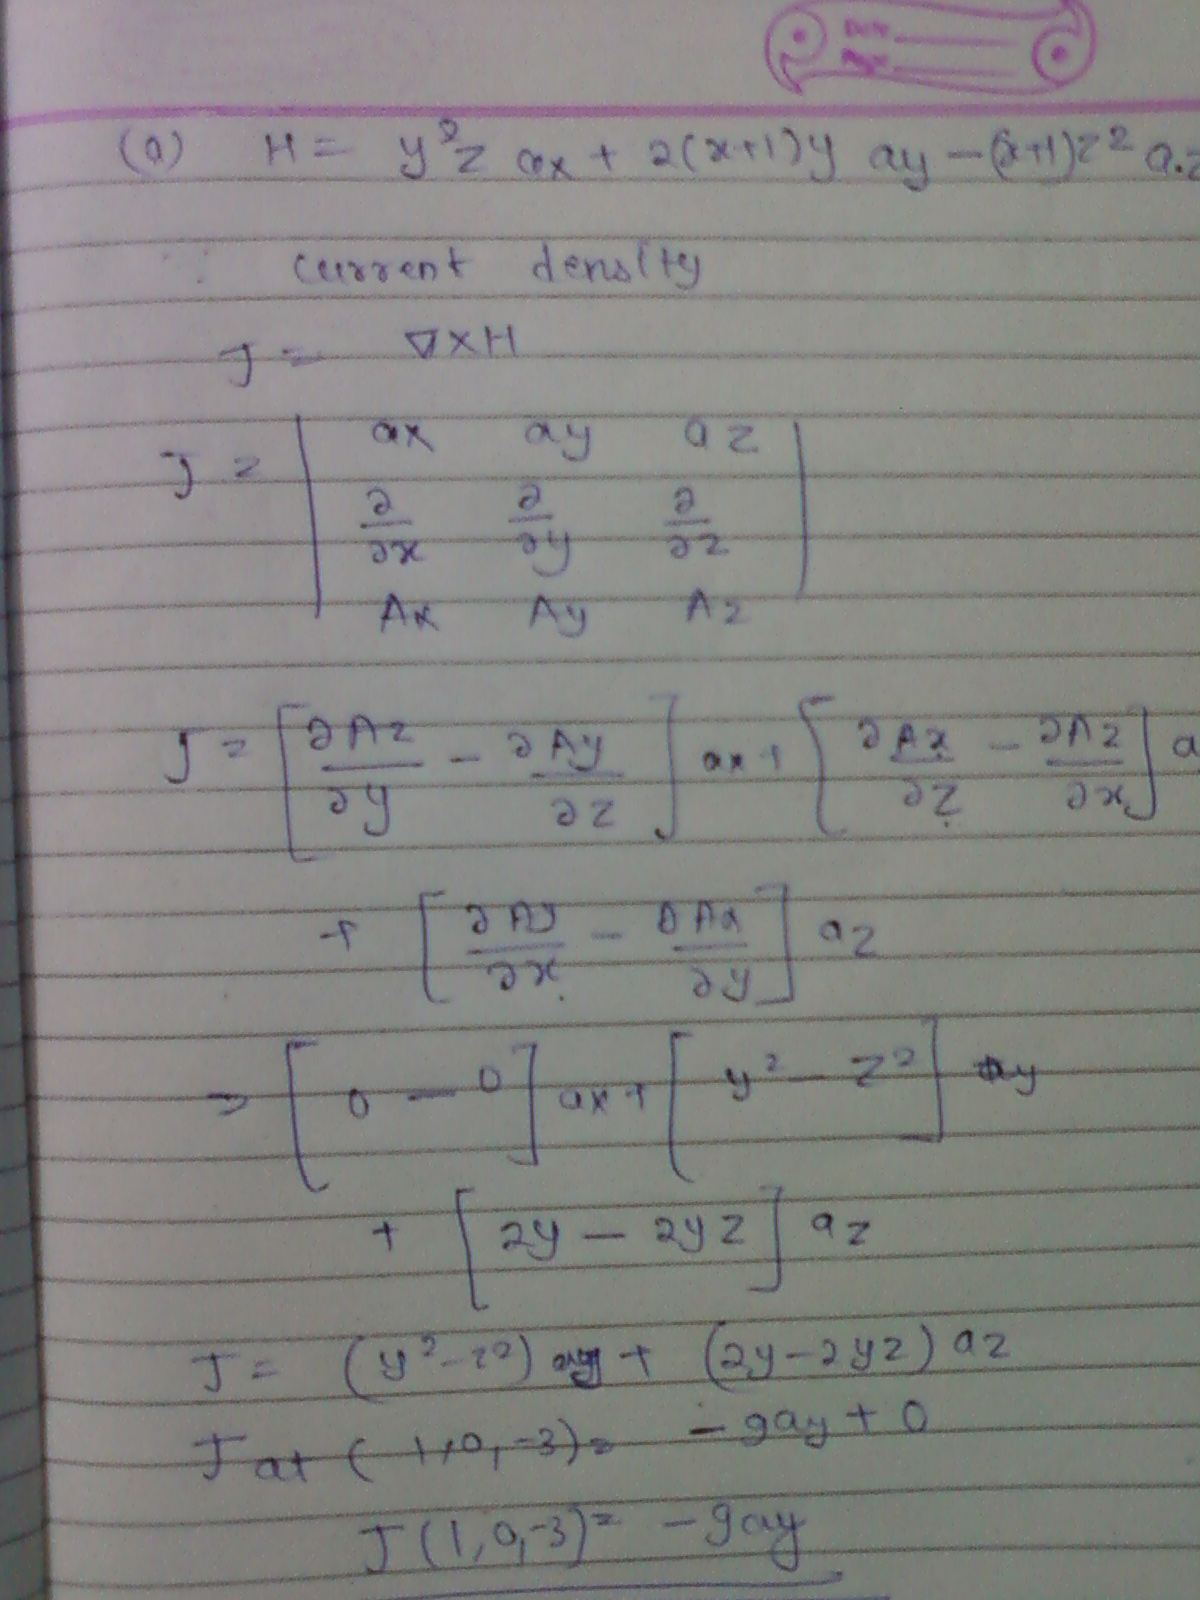 (a) H = y²z ax + 2(x+1)y ay − (x+1)z² az
∴ current density
J = ∇×H
J = | ax ay az |
| ∂/∂x ∂/∂y ∂/∂z |
| Ax Ay Az |
J = [∂Az/∂y − ∂Ay/∂z] ax + [∂Ax/∂z − ∂Az/∂x] a
+ [∂Ay/∂x − ∂Ax/∂y] az
= [0 − 0] ax + [y² − z²] ay
+ [2y − 2yz] az
J = (y² − z²) ay + (2y − 2yz) az
J at (1,0,−3) = −9ay + 0
J(1,0,−3) = −9ay